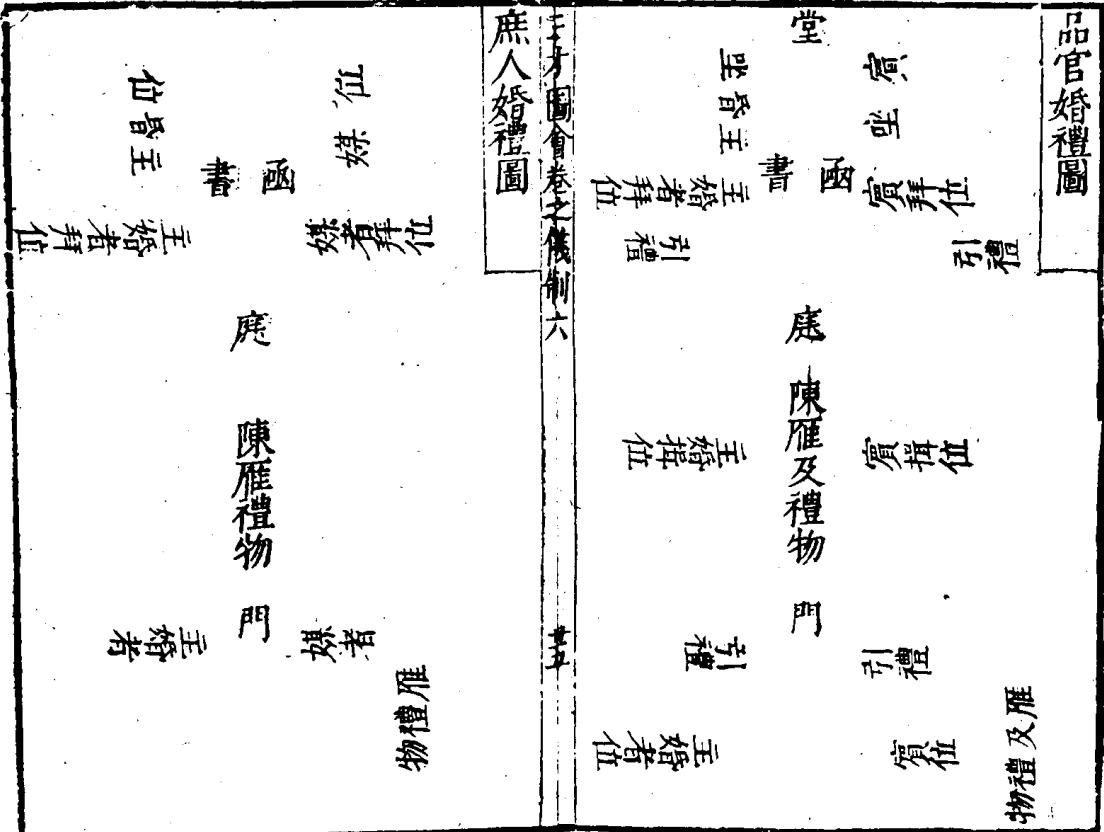 品官婚禮圖
堂
賓坐
主昏坐
函書
賓拜位
主婚者拜位
引禮
引禮
庭
陳雁及禮物
賓揖位
主婚揖位
門
引禮
引禮
賓位
主婚者位
雁及禮物
三才圖會卷之儀制六
廿五
庶人婚禮圖
媒位
主昏位
函書
媒者拜位
主婚者拜位
庭
陳雁禮物
門
媒者
主婚者
雁禮物